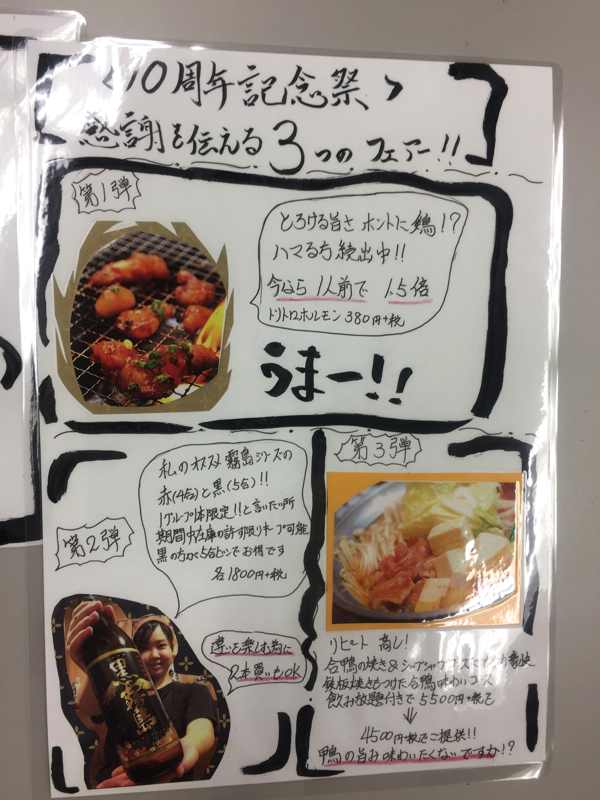 <10周年記念祭>
感謝を伝える3つのフェアー!!
第1弾
とろける旨さ ホントに鶏!?
ハマる方続出中!!
今なら1人前で 1.5倍
トリトロホルモン 380円+税
うまー!!
第2弾
私のオススメ 霧島シリーズの
赤(4合)と黒(5合)!!
1グループ1本限定!!と言いたい所
期間中在庫の許す限りキープ可能
黒の方が5合ビンでお得です
各1800円+税
違いを楽しむ為に
2本買いもOK
黒霧島
第3弾
リピート高し!
合鴨の焼き&シャブシャブ
鉄板焼きもつけた合鴨味わいコース
飲み放題付きで5500円+税を
↓
4500円+税でご提供!!
鴨の旨み味わいたくないですか!?